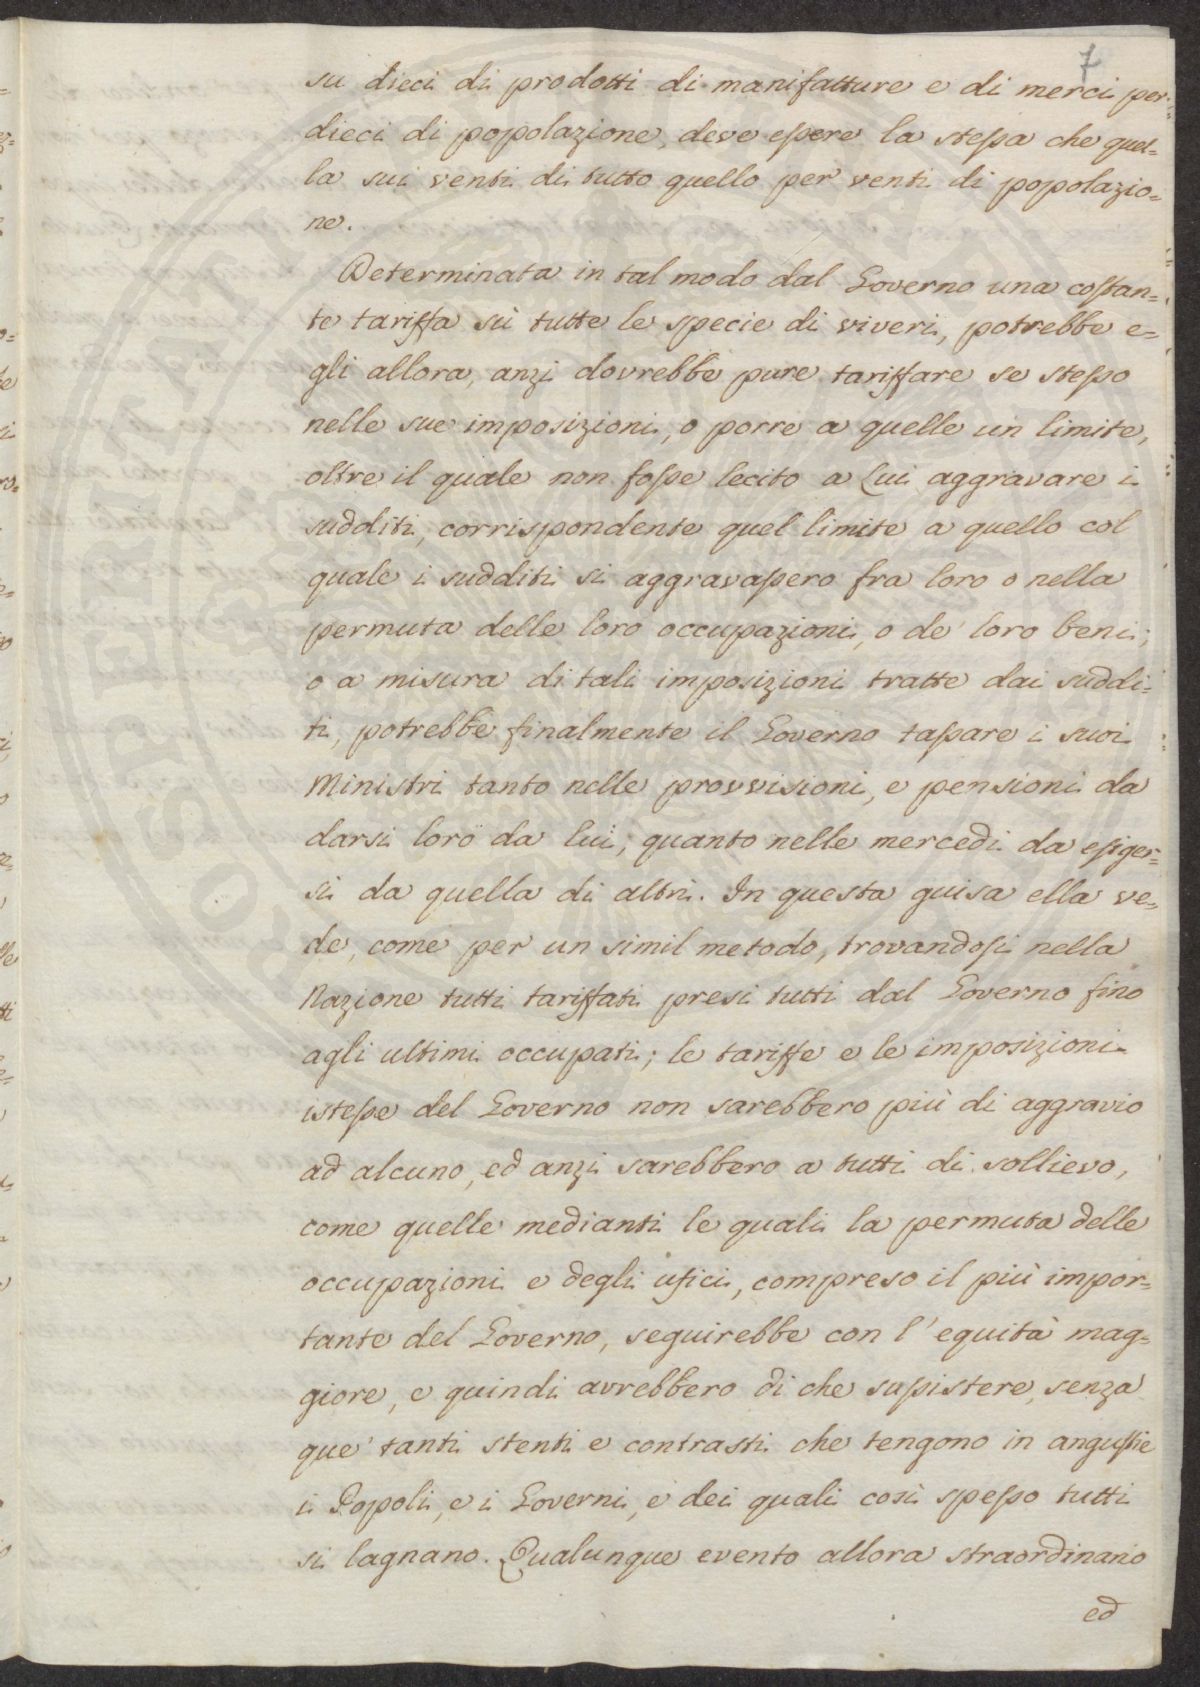 7
su dieci di prodotti di manifatture e di merci per
dieci di popolazione, deve eſsere la steſsa che quel=
la sui venti di tutto quello per venti di popolazio=
ne.
Determinata in tal modo dal Governo una coſtan=
te tariffa sù tutte le specie di viveri, potrebbe e=
gli allora, anzi dovrebbe pure tariffare se steſso
nelle sue imposizioni, o porre a quelle un limite,
oltre il quale non foſse lecito a Lui aggravare i
sudditi, corrispondente quel limite a quello col
quale i sudditi si aggravaſsero fra loro o nella
permuta delle loro occupazioni, o de' loro beni;
o a misura di tali imposizioni tratte dai suddi=
ti, potrebbe finalmente il Governo taſsare i suoi
Ministri tanto nelle provvisioni, e pensioni da
darsi loro da lui, quanto nelle mercedi da esiger=
si da quella di altri. In questa guisa ella ve=
de, come per un simil metodo, trovandoſi nella
Nazione tutti tariffati presi tutti dal Governo fino
agli ultimi occupati; le tariffe e le imposizioni
isteſse del Governo non sarebbero più di aggravio
ad alcuno, ed anzi sarebbero a tutti di sollievo,
come quelle medianti le quali la permuta delle
occupazioni e degli ufici, compreso il più impor=
tante del Governo, seguirebbe con l'equità mag=
giore, e quindi avrebbero di che suſsistere, senza
que' tanti stenti e contrasti che tengono in anguſtie
i Popoli, e i Governi, e dei quali così speſso tutti
si lagnano. Qualunque evento allora straordinario
ed